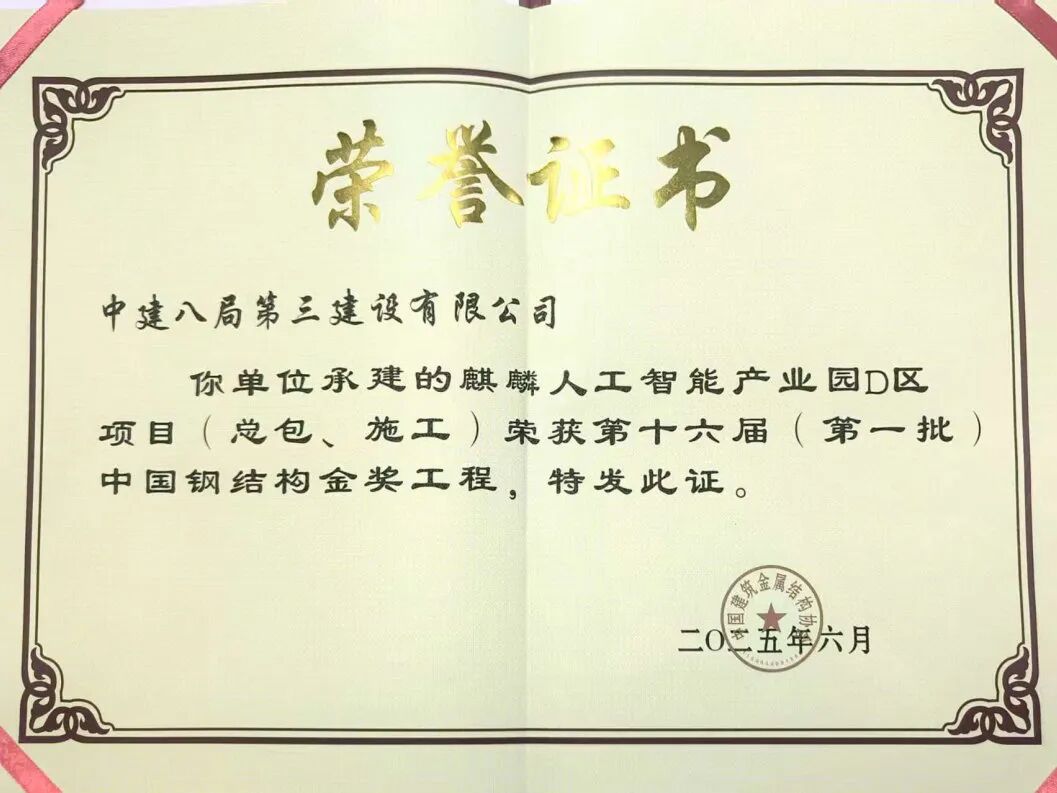 荣誉证书
中建八局第三建设有限公司
你单位承建的麒麟人工智能产业园D区
项目（总包、施工）荣获第十六届（第一批）
中国钢结构金奖工程，特发此证。
中国建筑金属结构协
二〇二五年六月